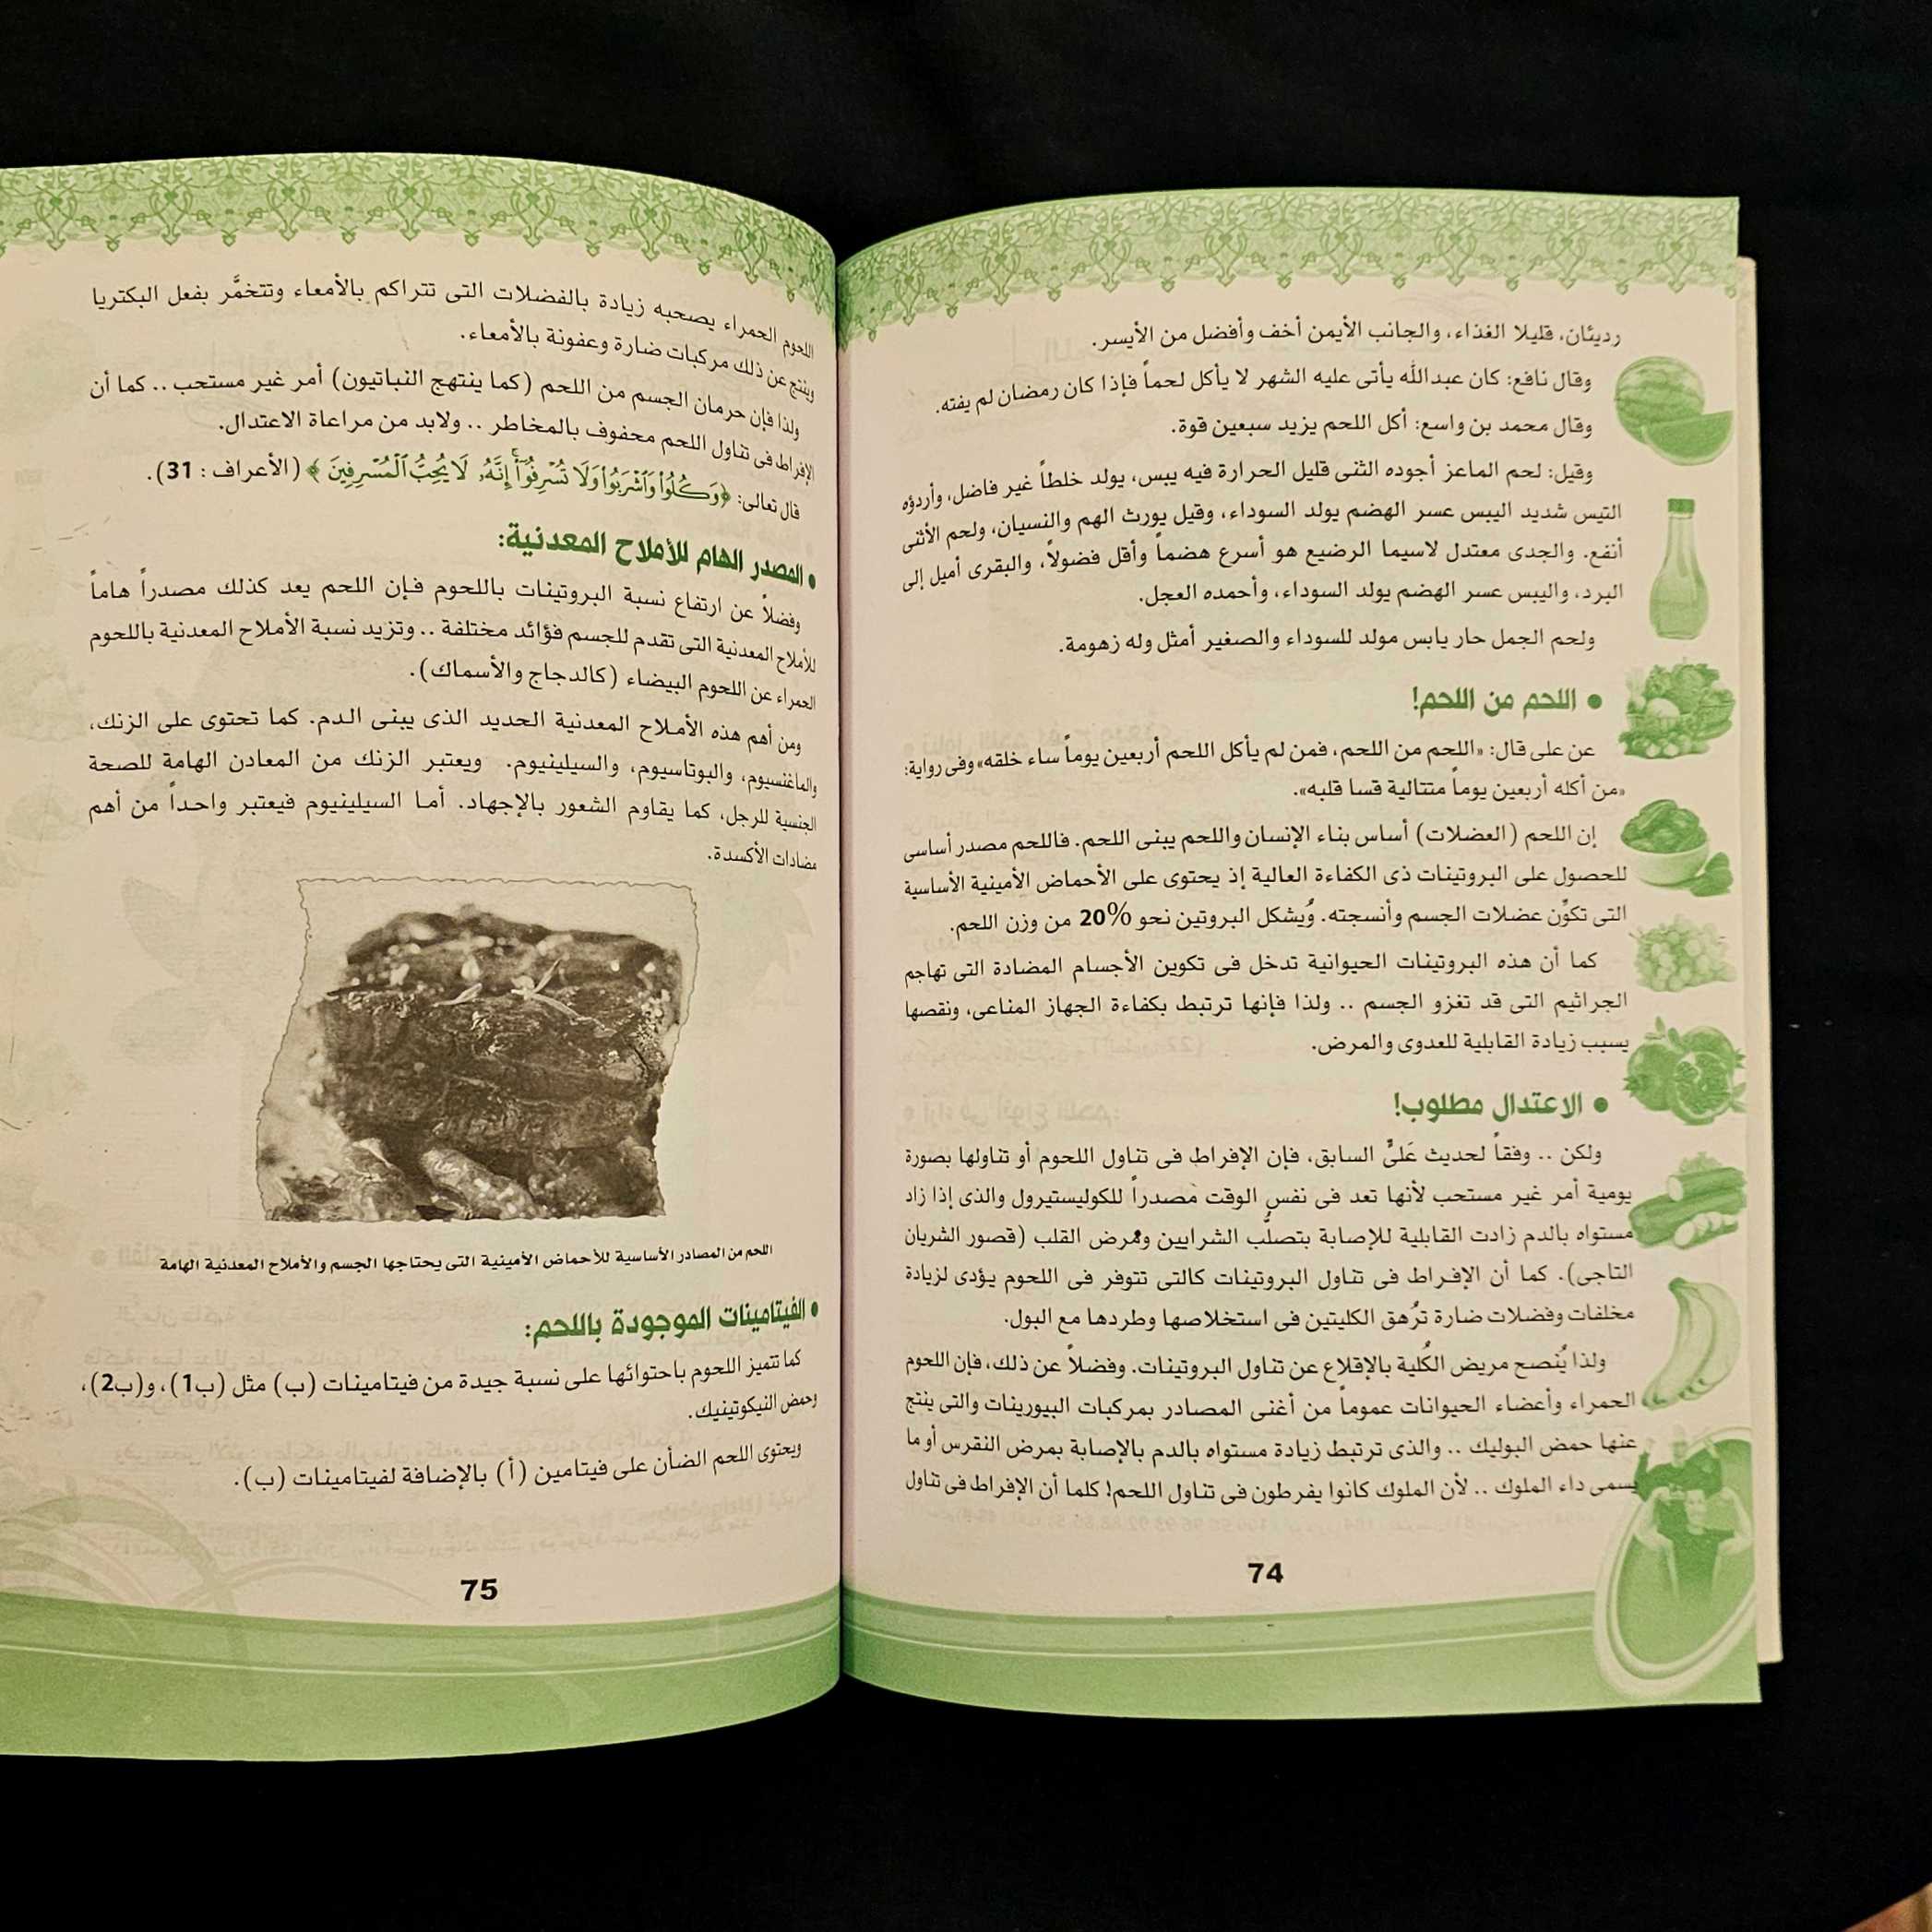 رديئان، قليلا الغذاء، والجانب الأيمن أخف وأفضل من الأيسر.
وقال نافع: كان عبدالله يأتى عليه الشهر لا يأكل لحماً فإذا كان رمضان لم يفته.
وقال محمد بن واسع: أكل اللحم يزيد سبعين قوة.
وقيل: لحم الماعز أجوده الثنى قليل الحرارة فيه يبس، يولد خلطاً غير فاضل، وأردؤه
التيس شديد اليبس عسر الهضم يولد السوداء، وقيل يورث الهم والنسيان، ولحم الأنثى
أنفع. والجدى معتدل لاسيما الرضيع هو أسرع هضماً وأقل فضولاً، والبقرى أميل إلى
البرد، واليبس عسر الهضم يولد السوداء، وأحمده العجل.
ولحم الجمل حار يابس مولد للسوداء والصغير أمثل وله زهومة.
• اللحم من اللحم!
عن على قال: «اللحم من اللحم، فمن لم يأكل اللحم أربعين يوماً ساء خلقه» وفى رواية:
«من أكله أربعين يوماً متتالية قسا قلبه».
إن اللحم (العضلات) أساس بناء الإنسان واللحم يبنى اللحم. فاللحم مصدر أساسى
للحصول على البروتينات ذى الكفاءة العالية إذ يحتوى على الأحماض الأمينية الأساسية
التى تكوِّن عضلات الجسم وأنسجته. وُيشكل البروتين نحو 20% من وزن اللحم.
كما أن هذه البروتينات الحيوانية تدخل فى تكوين الأجسام المضادة التى تهاجم
الجراثيم التى قد تغزو الجسم .. ولذا فإنها ترتبط بكفاءة الجهاز المناعى، ونقصها
يسبب زيادة القابلية للعدوى والمرض.
• الاعتدال مطلوب!
ولكن .. وفقاً لحديث عَلىٍّ السابق، فإن الإفراط فى تناول اللحوم أو تناولها بصورة
يومية أمر غير مستحب لأنها تعد فى نفس الوقت مصدراً للكوليستيرول والذى إذا زاد
مستواه بالدم زادت القابلية للإصابة بتصلُّب الشرايين ومرض القلب (قصور الشريان
التاجى). كما أن الإفراط فى تناول البروتينات كالتى تتوفر فى اللحوم يؤدى لزيادة
مخلفات وفضلات ضارة تُرهق الكليتين فى استخلاصها وطردها مع البول.
ولذا يُنصح مريض الكُلية بالإقلاع عن تناول البروتينات. وفضلاً عن ذلك، فإن اللحوم
الحمراء وأعضاء الحيوانات عموماً من أغنى المصادر بمركبات البيورينات والتى ينتج
عنها حمض البوليك .. والذى ترتبط زيادة مستواه بالدم بالإصابة بمرض النقرس أو ما
يسمى داء الملوك .. لأن الملوك كانوا يفرطون فى تناول اللحم! كلما أن الإفراط فى تناول
74
اللحوم الحمراء يصحبه زيادة بالفضلات التى تتراكم بالأمعاء وتتخمَّر بفعل البكتريا
وينتج عن ذلك مركبات ضارة وعفونة بالأمعاء.
ولذا فإن حرمان الجسم من اللحم (كما ينتهج النباتيون) أمر غير مستحب .. كما أن
الإفراط فى تناول اللحم محفوف بالمخاطر .. ولابد من مراعاة الاعتدال.
قال تعالى: ﴿وَكُلُوا۟ وَٱشْرَبُوا۟ وَلَا تُسْرِفُوٓا۟ ۚ إِنَّهُۥ لَا يُحِبُّ ٱلْمُسْرِفِينَ﴾ (الأعراف : 31).
• المصدر الهام للأملاح المعدنية:
وفضلاً عن ارتفاع نسبة البروتينات باللحوم فإن اللحم يعد كذلك مصدراً هاماً
للأملاح المعدنية التى تقدم للجسم فؤائد مختلفة .. وتزيد نسبة الأملاح المعدنية باللحوم
الحمراء عن اللحوم البيضاء (كالدجاج والأسماك).
ومن أهم هذه الأملاح المعدنية الحديد الذى يبنى الدم. كما تحتوى على الزنك،
والماغنسيوم، والبوتاسيوم، والسيلينيوم. ويعتبر الزنك من المعادن الهامة للصحة
الجنسية للرجل، كما يقاوم الشعور بالإجهاد. أما السيلينيوم فيعتبر واحداً من أهم
مضادات الأكسدة.
اللحم من المصادر الأساسية للأحماض الأمينية التى يحتاجها الجسم والأملاح المعدنية الهامة
• الفيتامينات الموجودة باللحم:
كما تتميز اللحوم باحتوائها على نسبة جيدة من فيتامينات (ب) مثل (ب1)، و(ب2)،
وحمض النيكوتينيك.
ويحتوى اللحم الضأن على فيتامين (أ) بالإضافة لفيتامينات (ب).
75